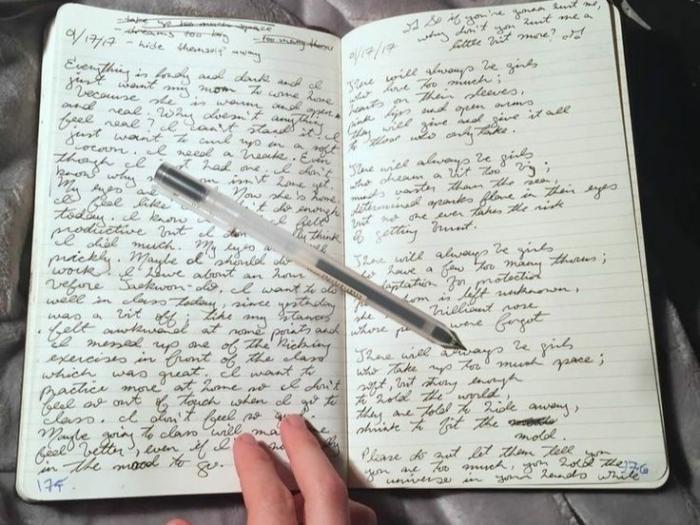 - take up too much space
- dreams too big
- too many thorns
9/17/17 - hide themself away
Everything is lonely and dark and I
just want my mom to come home
because she is warm and open
and real. Why doesn't anything
feel real? I can't stand it. I
just want to curl up in a soft
cocoon. I need a break. Even
though I had one. I don't
know why isn't home yet.
My eyes are Now she's home.
I feel like I didn't do enough
today. I know I felt
productive but I don't think
I did much. My eyes
prickly. Maybe I should do
work. I have about an hour
before Taekwon-do. I want to do
well in class today, since yesterday
was a bit off. Like my stances
felt awkward at some points and
I messed up one of the kicking
exercises in front of the class
which was great. I want to
practice more at home so I don't
feel so out of touch when I go to
class. I don't feel so
Maybe going to class will make me
feel better, even if I'm not really
in the mood to go.
175
So if you're gonna hurt me,
why don't you hurt me a
little bit more?
9/17/17
There will always be girls
who love too much;
hearts on their sleeves,
pink lips and open arms
they will give and give it all
to those who only take.
There will always be girls
who dream a bit too big;
minds vaster than the sea,
determined sparks flare in their eyes
but no one ever takes the risk
of getting burnt.
There will always be girls
who have a few too many thorns;
adaptation for protection
from whom is left unknown,
she brilliant rose
whose were forgot
There will always be girls
who take up too much space;
soft, but strong enough
to hold the world,
they are told to hide away,
shrink to fit the
mold.
Please do not let them tell you
you are too much, you hold the
universe in your hands while
176